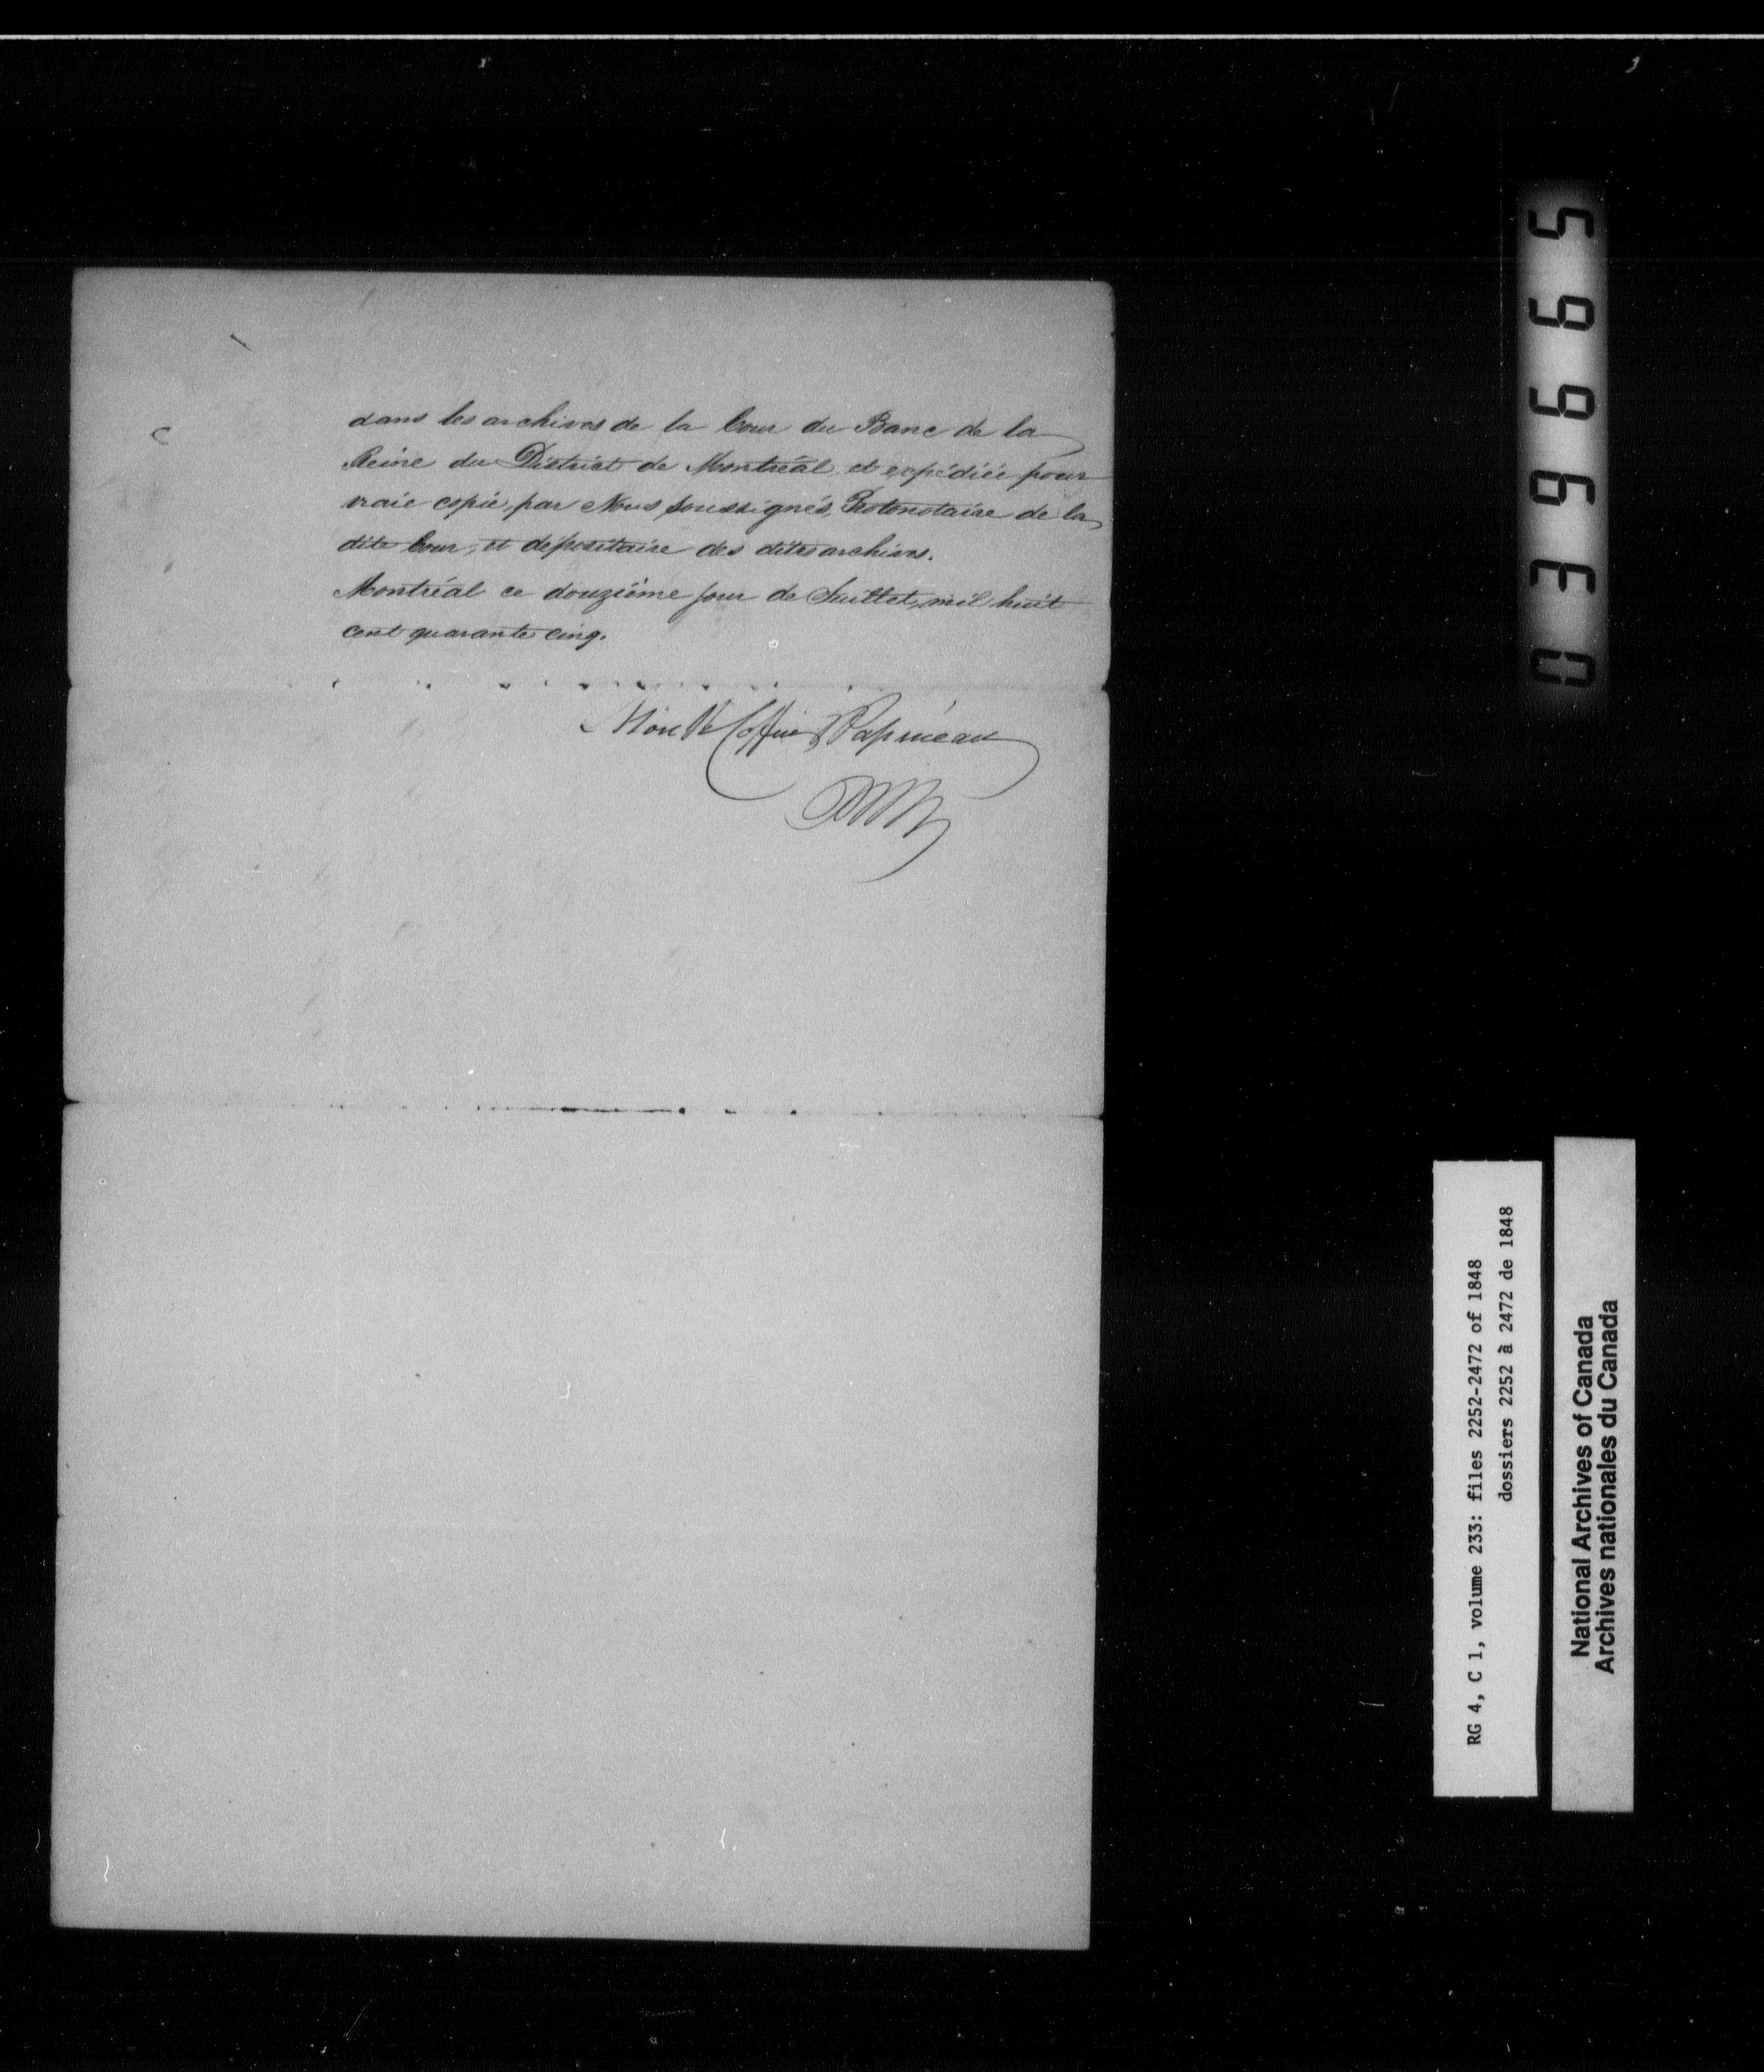 dans les archives de la Cour du Banc de la
Reine du District de Montréal, et expédiée pour
vraie copie, par Nous soussignés, Protonotaire de la
dite Cour, et dépositaire des dites archives.
Montréal ce douzième jour de Juillet, mil huit
cent quarante cinq.
Monk Coffin & Papineau
039665
RG 4, C 1, volume 233: files 2252-2472 of 1848
dossiers 2252 à 2472 de 1848
National Archives of Canada
Archives nationales du Canada